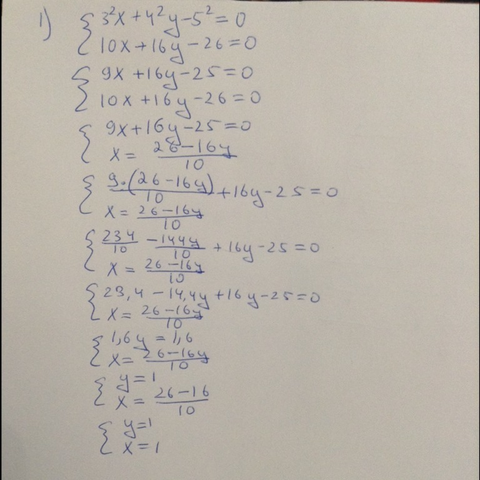 1) { 3²x+4²y-5²=0
10x+16y-26=0
{ 9x+16y-25=0
10x+16y-26=0
{ 9x+16y-25=0
x= (26-16y)/10
{ 9·(26-16y)/10 +16y-25=0
x= (26-16y)/10
{ 234/10 - 144y/10 +16y-25=0
x= (26-16y)/10
{ 23,4-14,4y+16y-25=0
x= (26-16y)/10
{ 1,6y=1,6
x= (26-16y)/10
{ y=1
x= (26-16)/10
{ y=1
x=1